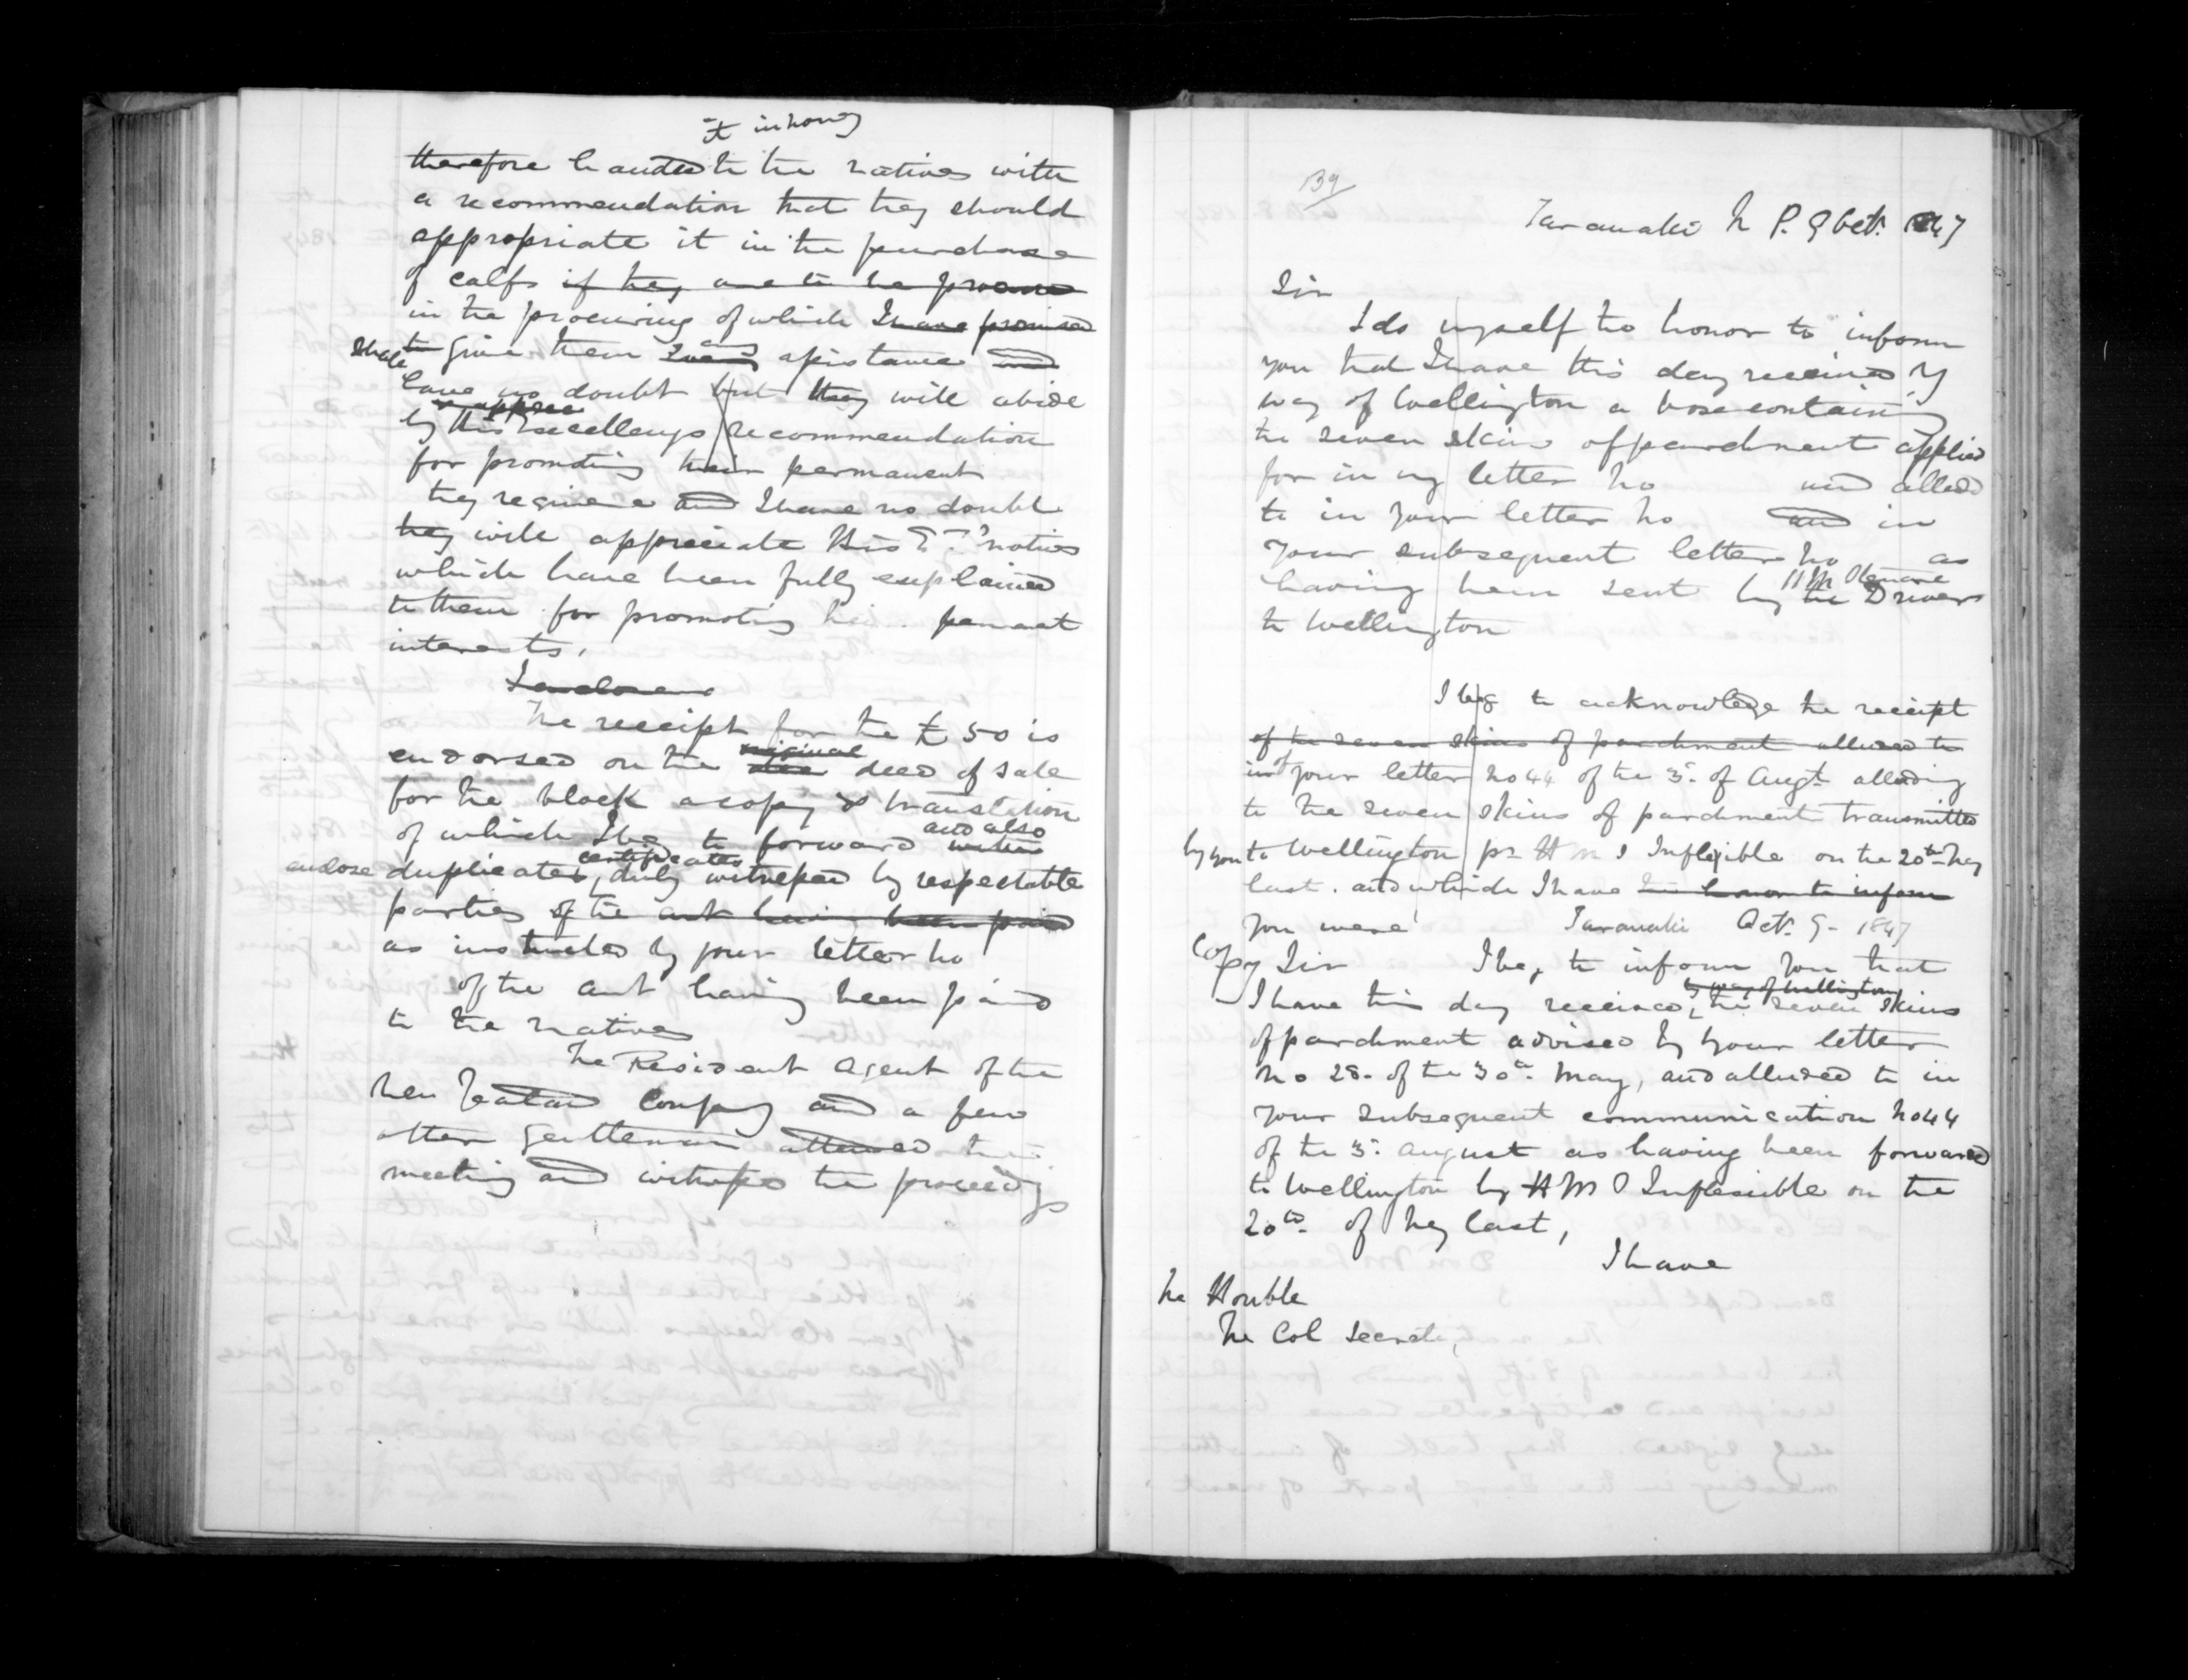 it in money
therefore handed to the natives with
a recommendation that they should
appropriate it in the purchase
of calfs if they are to be procured
in the procuring of which I have promised
shall
to give them any assistance and
have no doubt but they will abide
by this Excellencys recommendation
for promoting their permanent
they require and I have no doubt
they will appreciate His motives
which have been fully explained
to them for promoting permanent
interests.
I enclose
The receipt for the £50 is
original
endorsed on the deed of sale
for the block a copy & translation
and also
of which I beg to forward
certificates
enclose duplicates, duly witnessed by respectable
parties of the amt having been paid
as instructed by your letter No
of the amt having been paid
to the natives
The Resident Agent of the
New Zealand Company and a few
other gentlemen attended the
meeting and witnessed the proceedings
139
Taranaki N P. 9 Oct. 1847
Sir
I do myself the honor to inform
you that I have this day received by
way of Wellington a box containing
the seven skins of parchment applied
for in my letter No and alluded
to in your letter No and in
your subsequent letter No as
having been sent by the Driver
to Wellington
I beg to acknowledge the receipt
of the seven skins of parchment alluded to
in of your letter No 44 of the 3d. of Augt. alluding
to the seven skins of parchment transmitted
by you to Wellington pr H M S Inflexible on the 20th May
last. and which I have the honor to inform
you were
Taranaki Oct. 9 - 1847
Copy Sir I beg to inform you that
by way of Wellington
I have this day received, the seven skins
of parchment advised by your letter
No 28. of the 30th. May, and alluded to in
your subsequent communication No 44
of the 3d. August as having been forwarded
to Wellington by H M S Inflexible on the
20th. of May last,
I have
The Honble
The Col Secretary